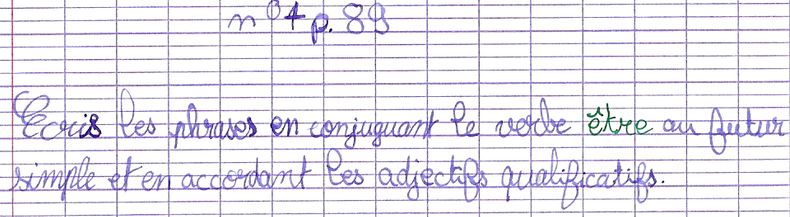 n°4 p. 89
Ecris les phrases en conjuguant le verbe être au futur
simple et en accordant les adjectifs qualificatifs.